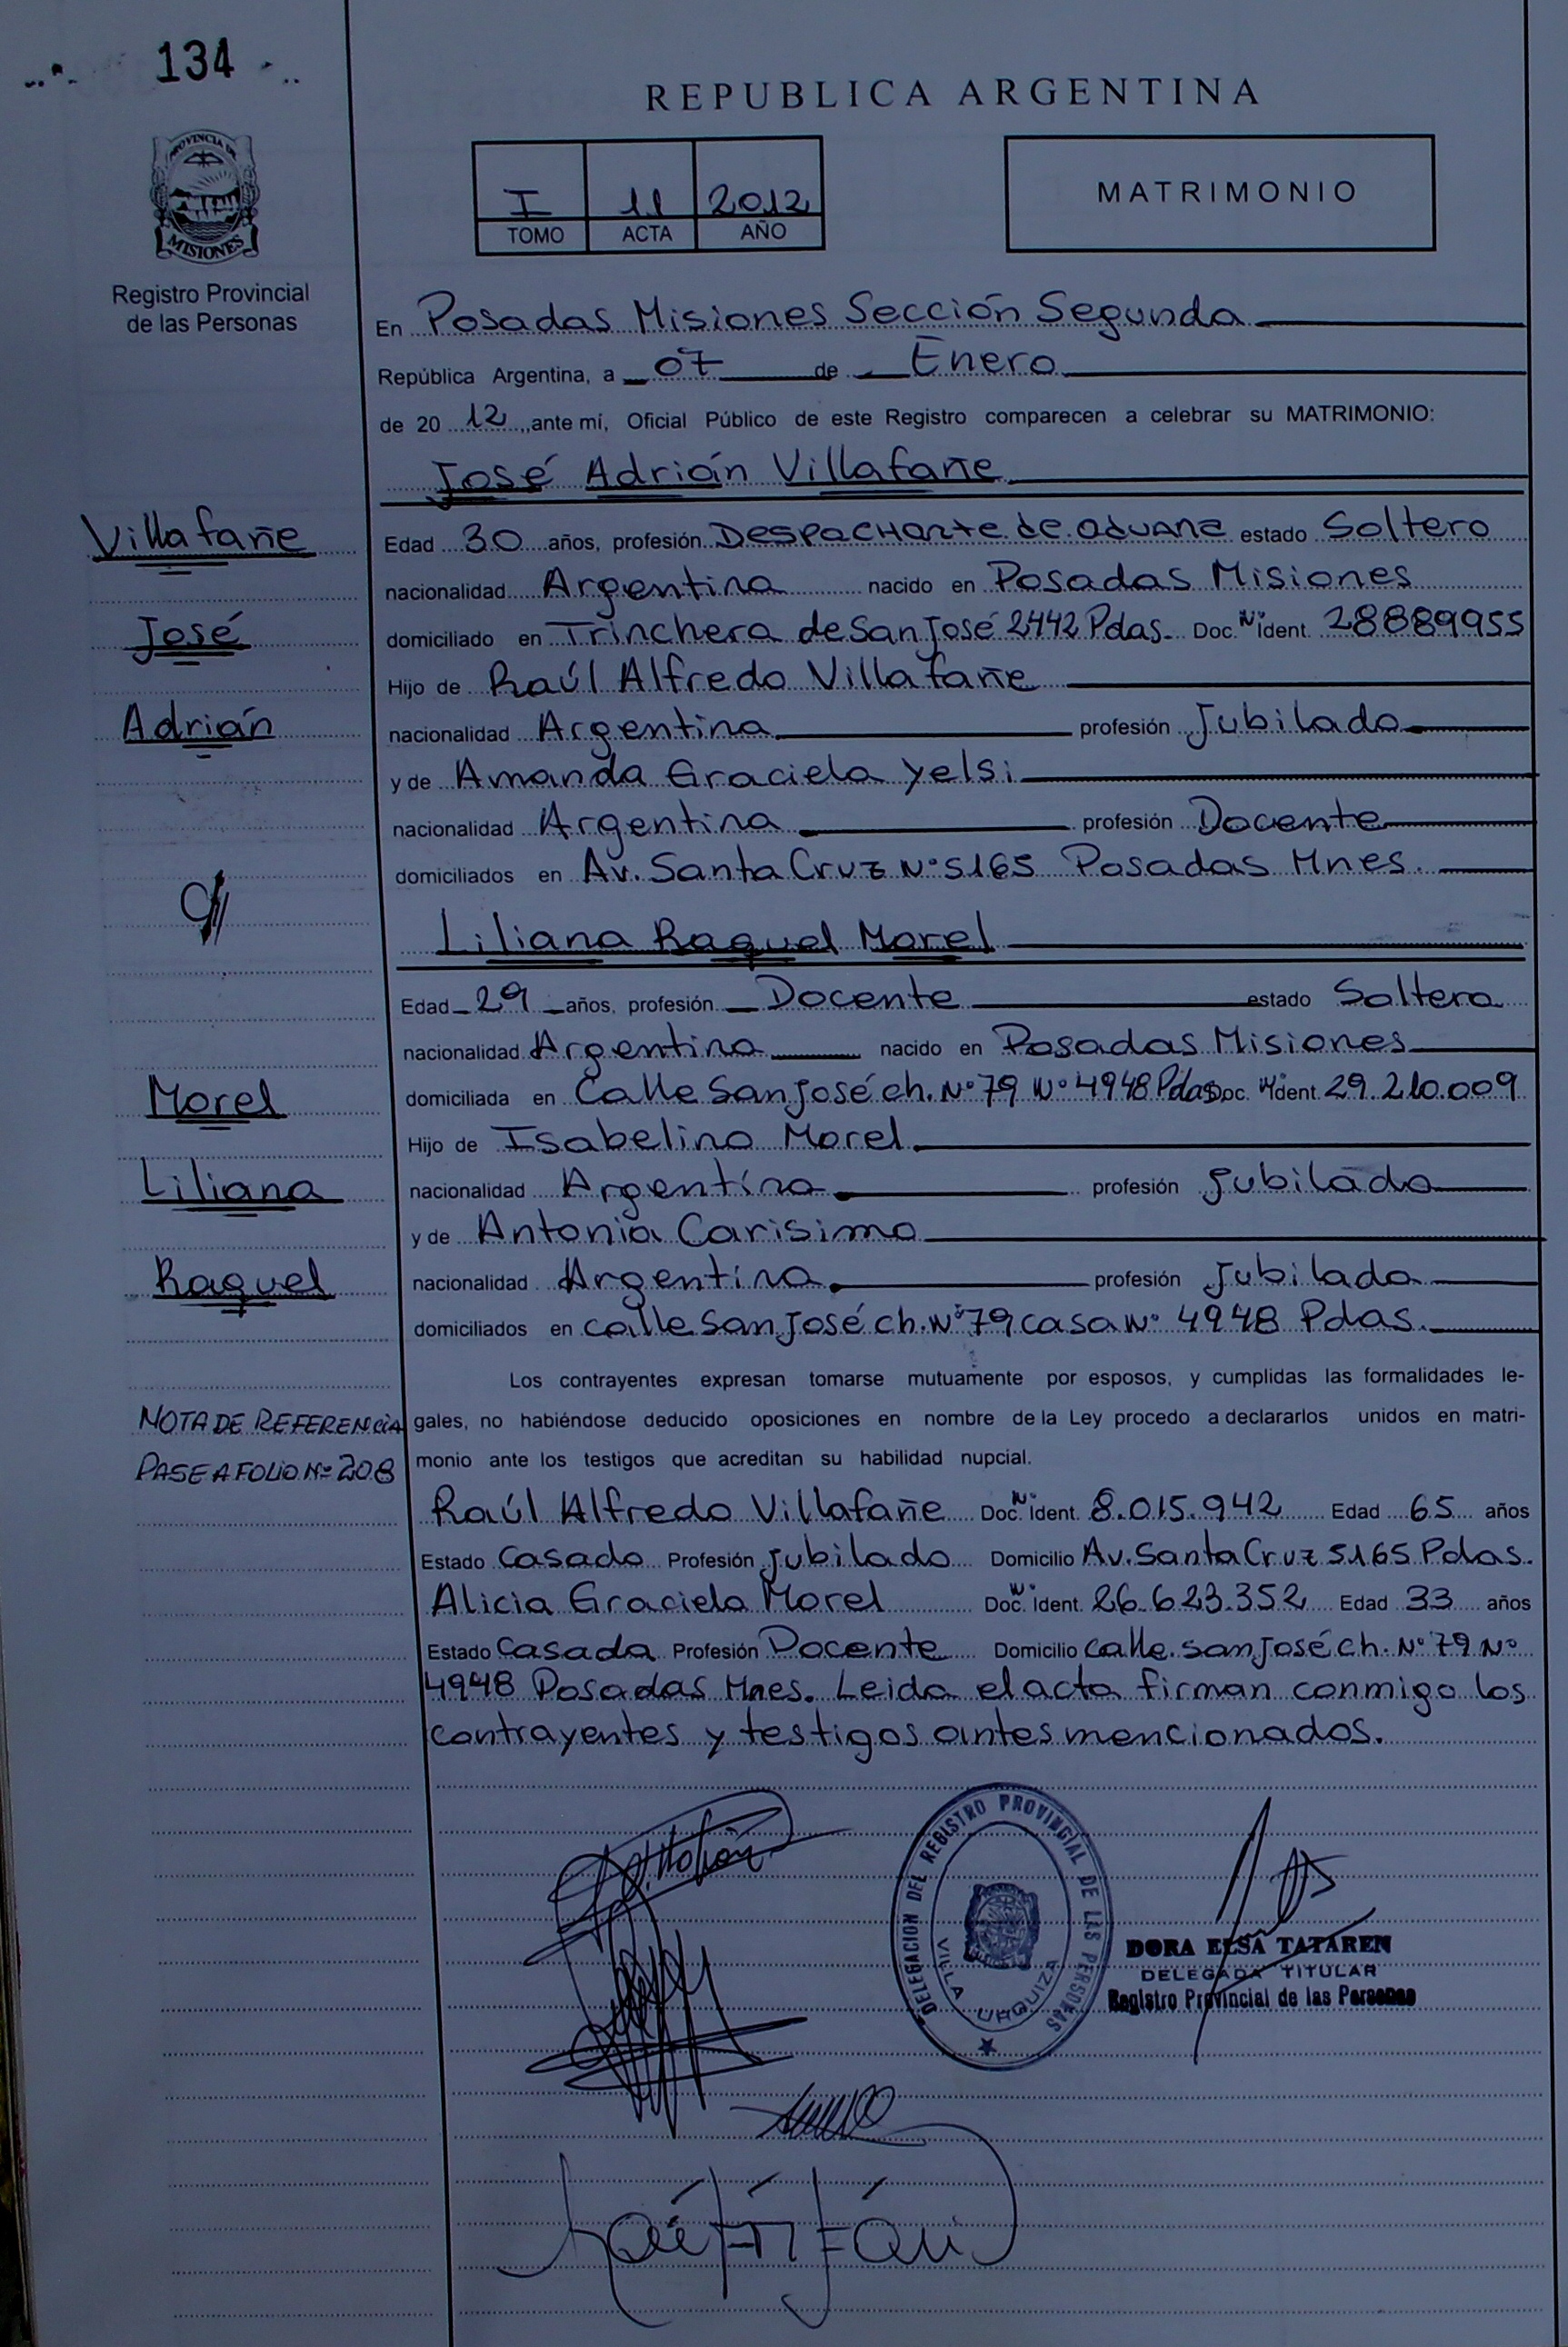 134
REPUBLICA ARGENTINA
PROVINCIA DE
MISIONES
Registro Provincial
de las Personas
I 11 2012
TOMO ACTA AÑO
MATRIMONIO
En Posadas Misiones Sección Segunda
República Argentina, a 07 de Enero
de 20 12, ante mí, Oficial Público de este Registro comparecen a celebrar su MATRIMONIO:
José Adrián Villafañe
Villafañe
Edad 30 años, profesión Despachante de aduana estado Soltero
nacionalidad Argentina nacido en Posadas Misiones
José
domiciliado en Trinchera de San José 2442 Pdas. Doc. Nº ident. 28889955
Hijo de Raúl Alfredo Villafañe
Adrián
nacionalidad Argentina profesión Jubilado
y de Amanda Graciela Yelsi
nacionalidad Argentina profesión Docente
domiciliados en Av. Santa Cruz Nº 5165 Posadas Mnes.
Liliana Raquel Morel
Edad 29 años, profesión Docente estado Soltera
nacionalidad Argentina nacido en Posadas Misiones
Morel
domiciliada en Calle San José ch. Nº 79 Nº 4948 Pdas Doc. Nº ident. 29.210.009
Hijo de Isabelino Morel
Liliana
nacionalidad Argentina profesión Jubilado
y de Antonia Carisimo
Raquel
nacionalidad Argentina profesión Jubilada
domiciliados en calle San José ch. Nº 79 casa Nº 4948 Pdas.
Los contrayentes expresan tomarse mutuamente por esposos, y cumplidas las formalidades le-
NOTA DE REFERENCIA
gales, no habiéndose deducido oposiciones en nombre de la Ley procedo a declararlos unidos en matri-
PASE A FOLIO Nº 208
monio ante los testigos que acreditan su habilidad nupcial.
Raúl Alfredo Villafañe Doc. Nº ident. 8.015.942 Edad 65 años
Estado Casado Profesión Jubilado Domicilio Av. Santa Cruz 5165 Pdas.
Alicia Graciela Morel Doc. Nº ident. 26.623.352 Edad 33 años
Estado Casada Profesión Docente Domicilio calle San José ch. Nº 79 Nº
4948 Posadas Mnes. Leida el acta firman conmigo los
contrayentes y testigos antes mencionados.
DELEGACION DEL REGISTRO PROVINCIAL DE LAS PERSONAS
VILLA URQUIZA
DORA ELSA TATAREN
DELEGADA TITULAR
Registro Provincial de las Personas